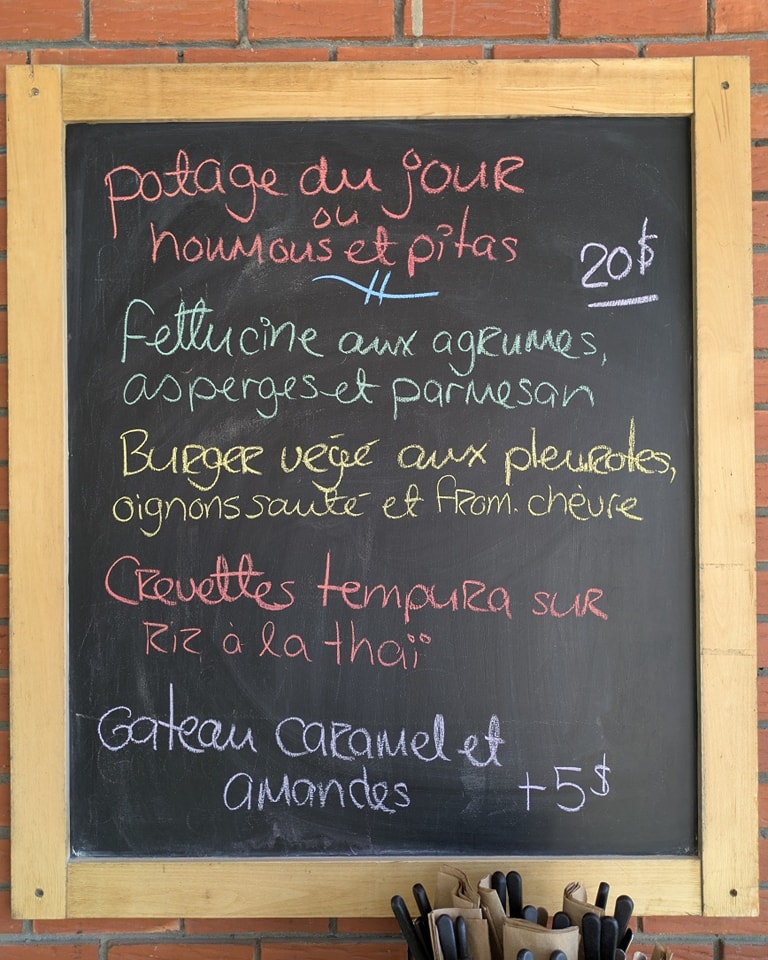 potage du jour
ou
houmous et pitas
20$
Fettucine aux agrumes,
asperges et parmesan
Burger végé aux pleurotes,
oignons sauté et from. chèvre
Crevettes tempura sur
riz à la thaï
Gateau caramel et
amandes
+5$